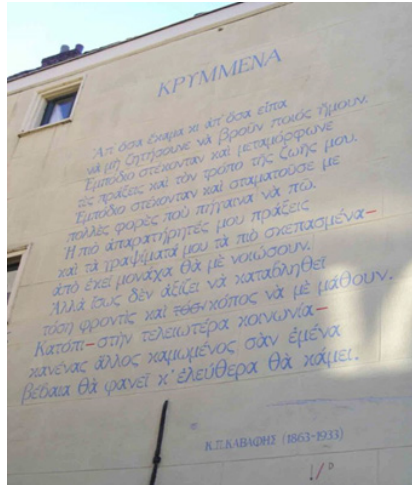 ΚΡΥΜΜΕΝΑ
Ἀπ' ὅσα ἔκαμα κι ἀπ' ὅσα εἶπα
νὰ μὴ ζητήσουνε νὰ βροῦν ποιὸς ἤμουν.
Ἐμπόδιο στέκονταν καὶ μεταμόρφωνε
τὲς πράξεις καὶ τὸν τρόπο τῆς ζωῆς μου.
Ἐμπόδιο στέκονταν καὶ σταματοῦσε με
πολλὲς φορὲς ποὺ πήγαινα νὰ πῶ.
Ἡ πιὸ ἀπαρατήρητές μου πράξεις
καὶ τὰ γραψίματά μου τὰ πιὸ σκεπασμένα—
ἀπὸ ἐκεῖ μονάχα θὰ μὲ νοιώσουν.
Ἀλλὰ ἴσως δὲν ἀξίζει νὰ καταβληθεῖ
τόση φροντὶς καὶ τόσος κόπος νὰ μὲ μάθουν.
Κατόπι—στὴν τελειωτέρα κοινωνία—
κανένας ἄλλος καμωμένος σὰν ἐμένα
βέβαια θὰ φανεῖ κ' ἐλεύθερα θὰ κάμει.
Κ.Π.ΚΑΒΑΦΗΣ (1863-1933)